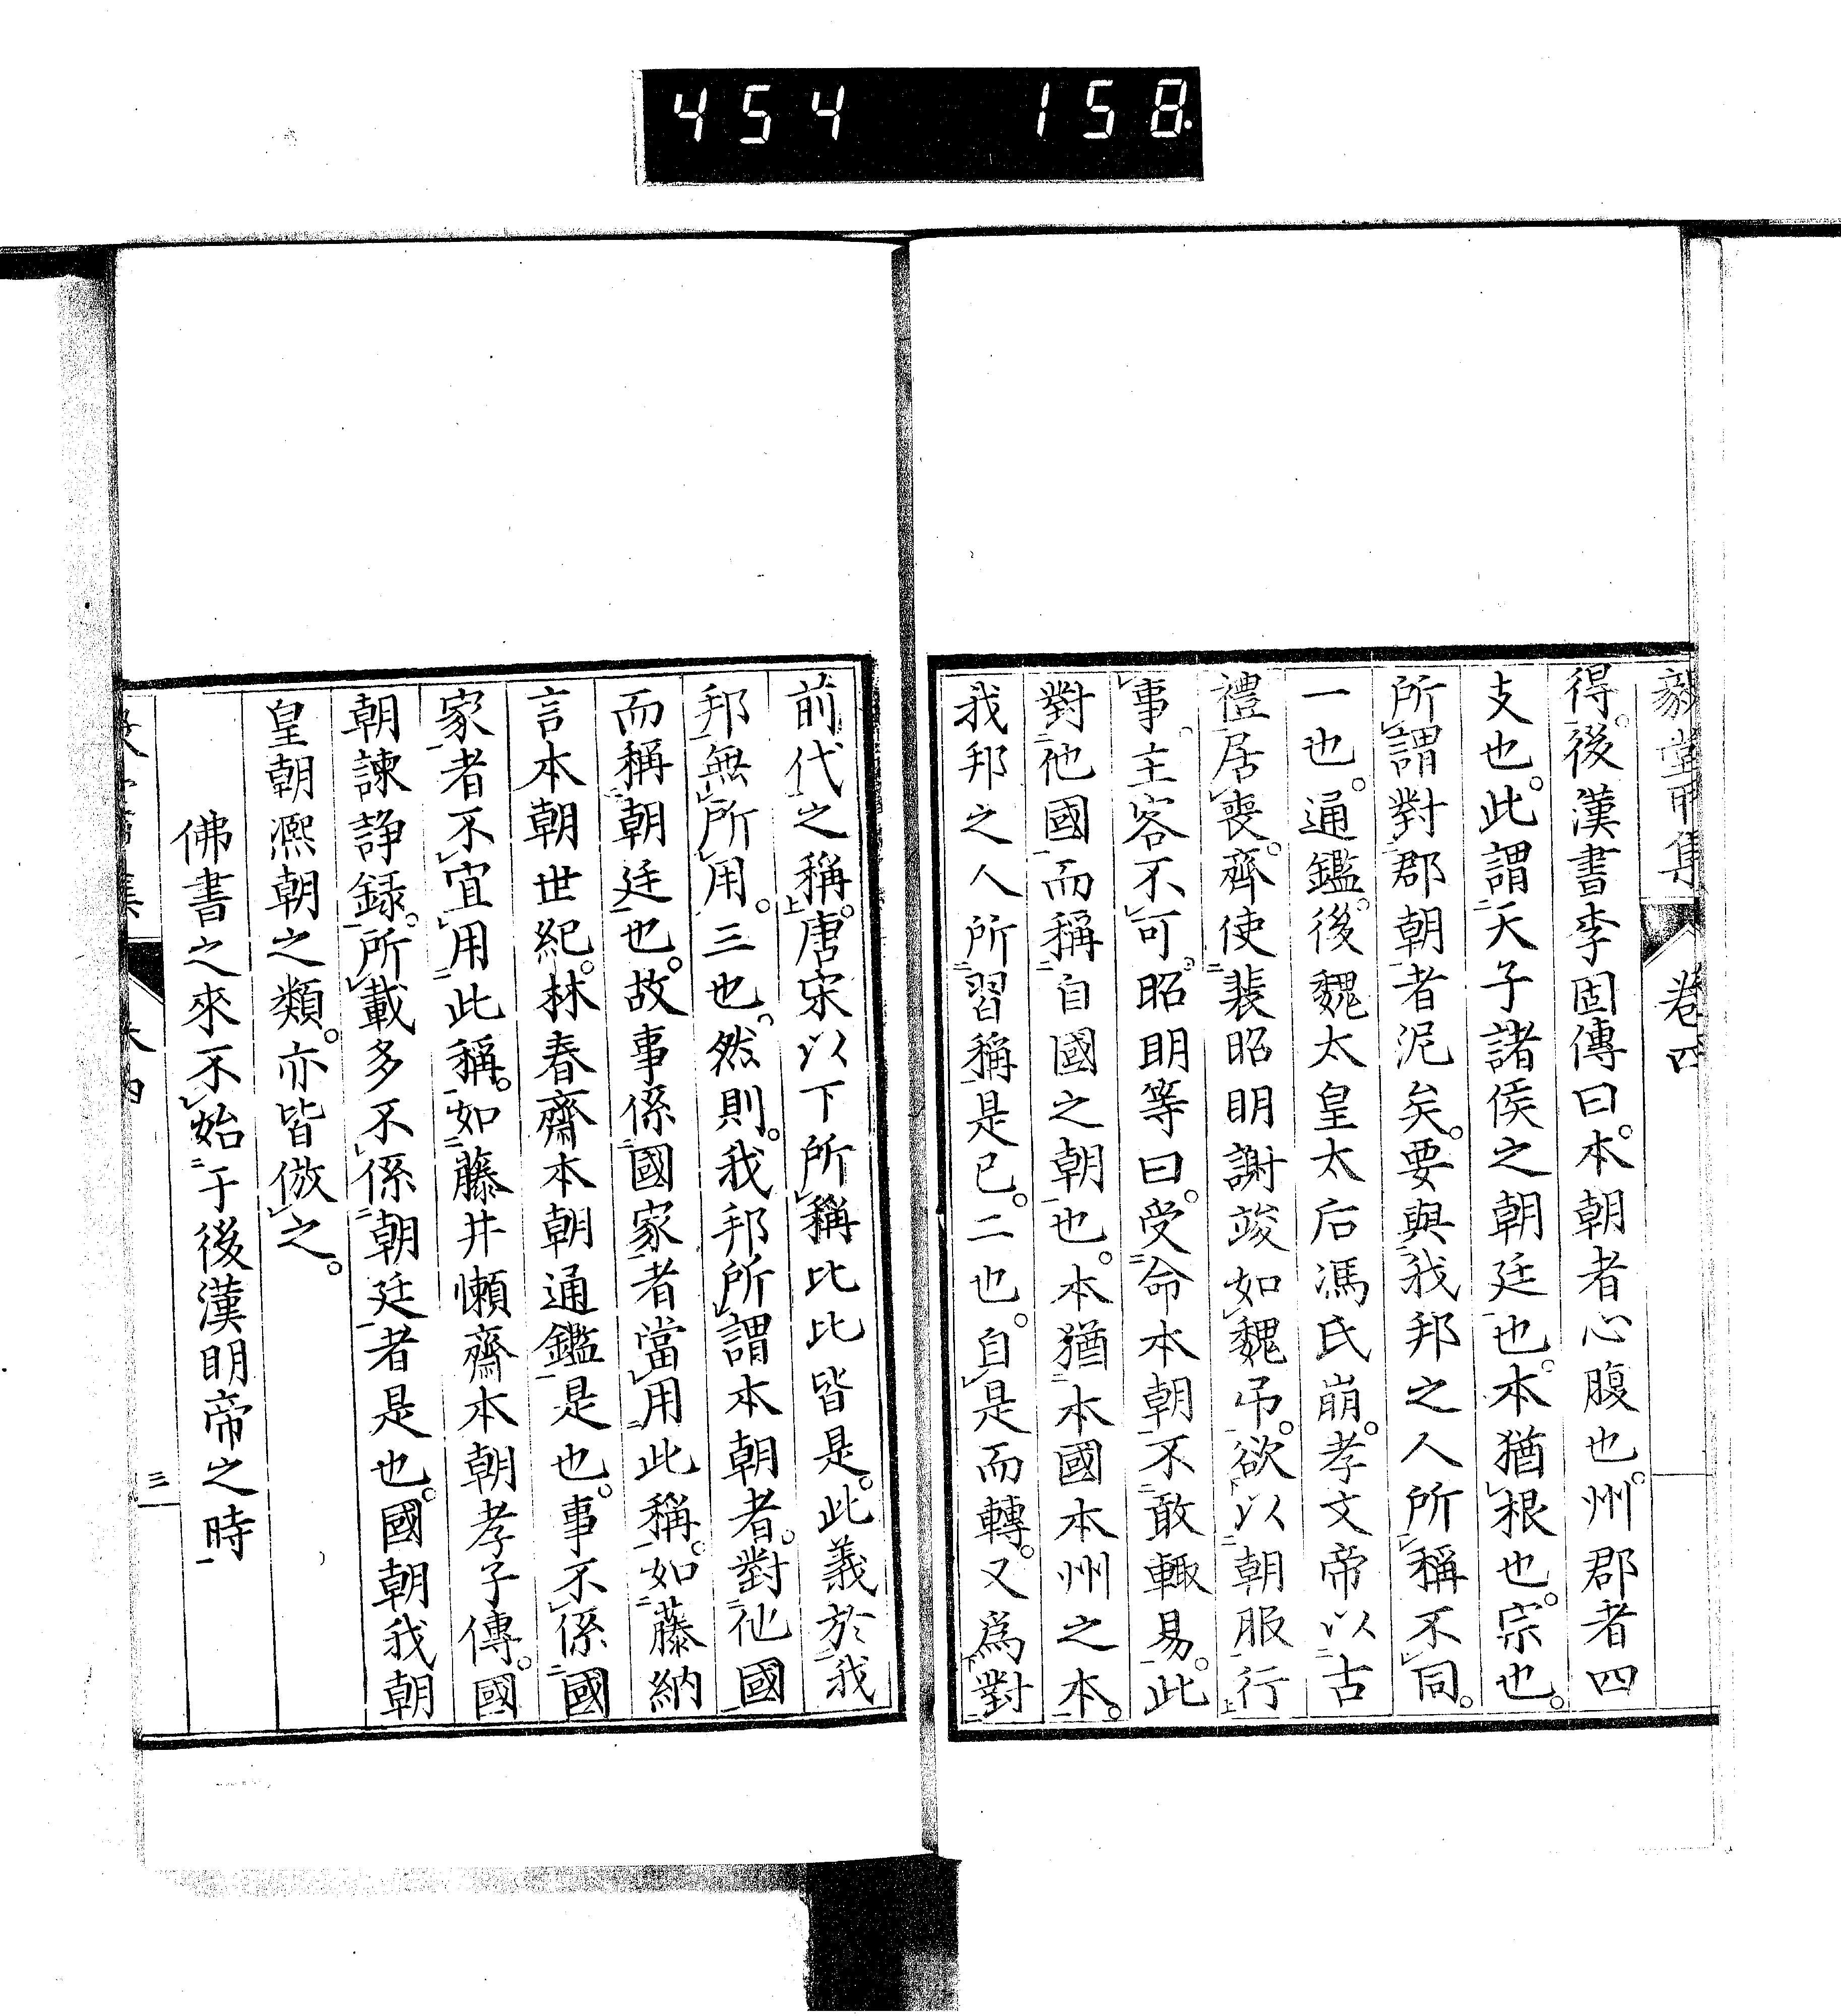 454 158
毅堂丙集 卷四
得。後漢書李固傳曰。本朝者心腹也。州郡者四
支也。此謂天子諸侯之朝廷也。本猶根也。宗也。
所謂對郡朝者泥矣。要與我邦之人所稱不同。
一也。通鑑。後魏太皇太后馮氏崩。孝文帝以古
禮居喪。齊使裴昭明謝竣如魏弔。欲以朝服行
事。主客不可。昭明等曰。受命本朝。不敢輙易。此
對他國而稱自國之朝也。本猶本國本州之本。
我邦之人所習稱是已。二也。自是而轉。又爲對
前代之稱。唐宋以下所稱比比皆是。此義於我
邦無所用。三也。然則。我邦所謂本朝者。對他國
而稱朝廷也。故事係國家者當用此稱。如藤納
言本朝世紀。林春齋本朝通鑑是也。事不係國
家者不宜用此稱。如藤井懶齋本朝孝子傳。國
朝諫諍録。所載多不係朝廷者是也。國朝我朝
皇朝凞朝之類。亦皆倣之。
佛書之來不始于後漢明帝之時
三